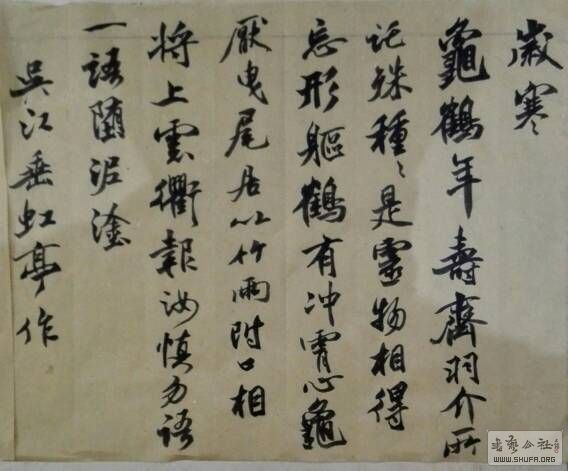 歲寒
龜鶴年壽齊羽介所
託殊種〻是靈物相得
忘形軀鶴有冲霄心龜
厭曳尾居以竹兩附口相
將上雲衢報汝慎勿語
一語墮泥塗
吳江垂虹亭作
书艺公社
WWW.SHUFA.ORG